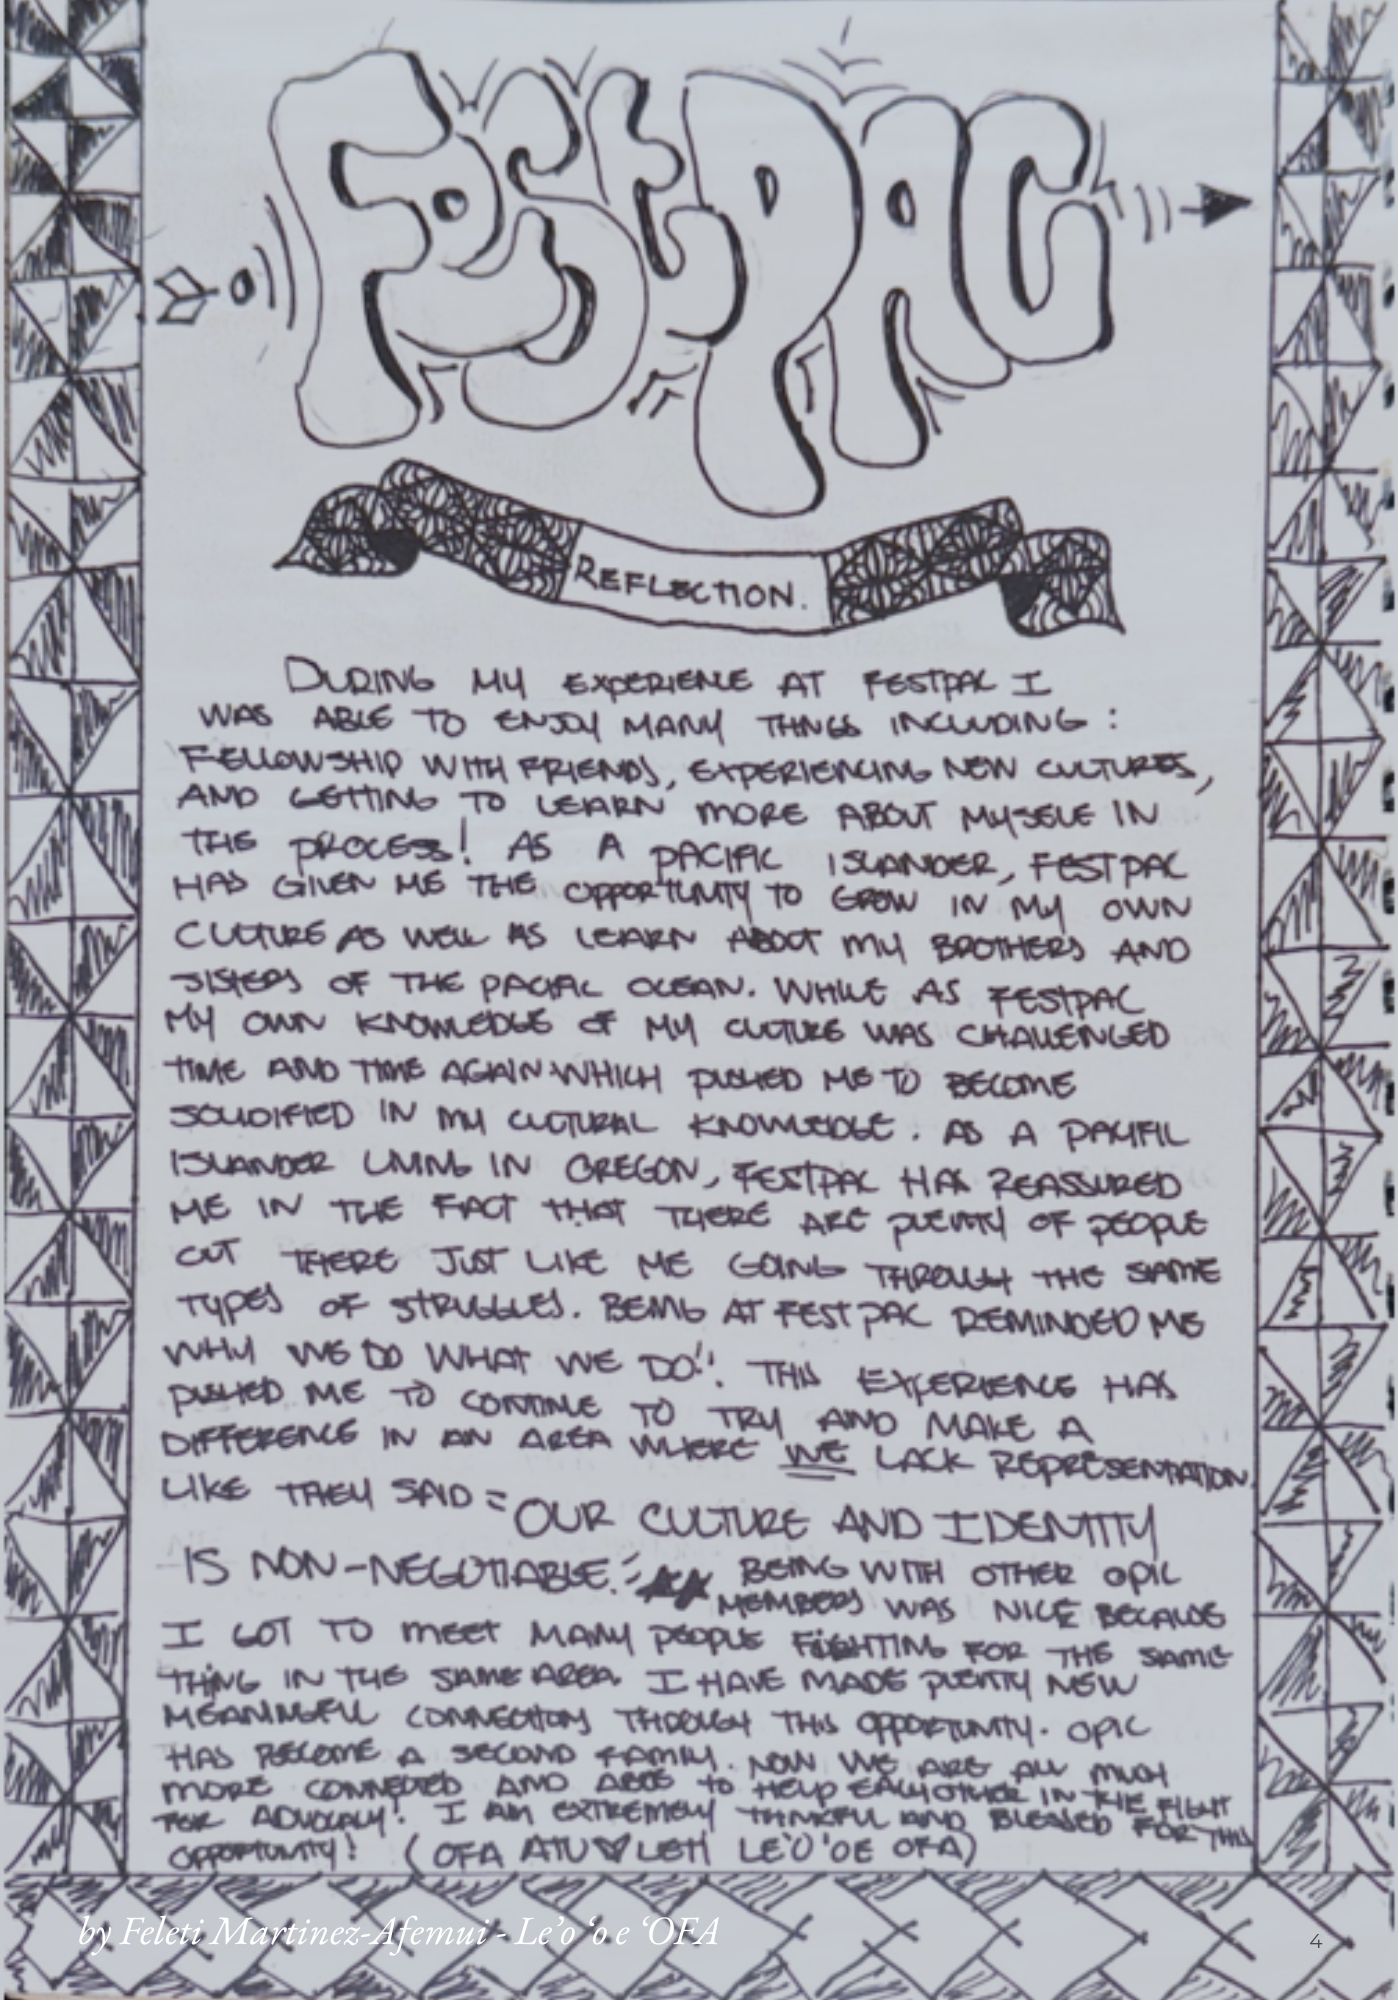 FestPAC
REFLECTION.
DURING MY EXPERIENCE AT FESTPAC I
WAS ABLE TO ENJOY MANY THINGS INCLUDING :
FELLOWSHIP WITH FRIENDS, EXPERIENCING NEW CULTURES,
AND GETTING TO LEARN MORE ABOUT MYSELF IN
THE PROCESS! AS A PACIFIC ISLANDER, FESTPAC
HAS GIVEN ME THE OPPORTUNITY TO GROW IN MY OWN
CULTURE AS WELL AS LEARN ABOUT MY BROTHERS AND
SISTERS OF THE PACIFIC OCEAN. WHILE AS FESTPAC
MY OWN KNOWLEDGE OF MY CULTURE WAS CHALLENGED
TIME AND TIME AGAIN WHICH PUSHED ME TO BECOME
SOLIDIFIED IN MY CULTURAL KNOWLEDGE. AS A PACIFIC
ISLANDER LIVING IN OREGON, FESTPAC HAS REASSURED
ME IN THE FACT THAT THERE ARE PLENTY OF PEOPLE
OUT THERE JUST LIKE ME GOING THROUGH THE SAME
TYPES OF STRUGGLES. BEING AT FESTPAC REMINDED ME
WHY WE DO WHAT WE DO!! THIS EXPERIENCE HAS
PUSHED ME TO CONTINUE TO TRY AND MAKE A
DIFFERENCE IN AN AREA WHERE WE LACK REPRESENTATION.
LIKE THEY SAID = OUR CULTURE AND IDENTITY
IS NON-NEGOTIABLE. BEING WITH OTHER OPIC
MEMBERS WAS NICE BECAUSE
I GOT TO MEET MANY PEOPLE FIGHTING FOR THE SAME
THING IN THE SAME AREA. I HAVE MADE PLENTY NEW
MEANINGFUL CONNECTIONS THROUGH THIS OPPORTUNITY. OPIC
HAS BECOME A SECOND FAMILY. NOW WE ARE ALL MUCH
MORE CONNECTED AND ABLE TO HELP EACH OTHER IN THE FIGHT
FOR ADVOCACY! I AM EXTREMELY THANKFUL AND BLESSED FOR THIS
OPPORTUNITY! (OFA ATU ♡ LETI LE'O 'OE OFA)
by Feleti Martinez-Afemui - Le'o 'o e 'OFA
4